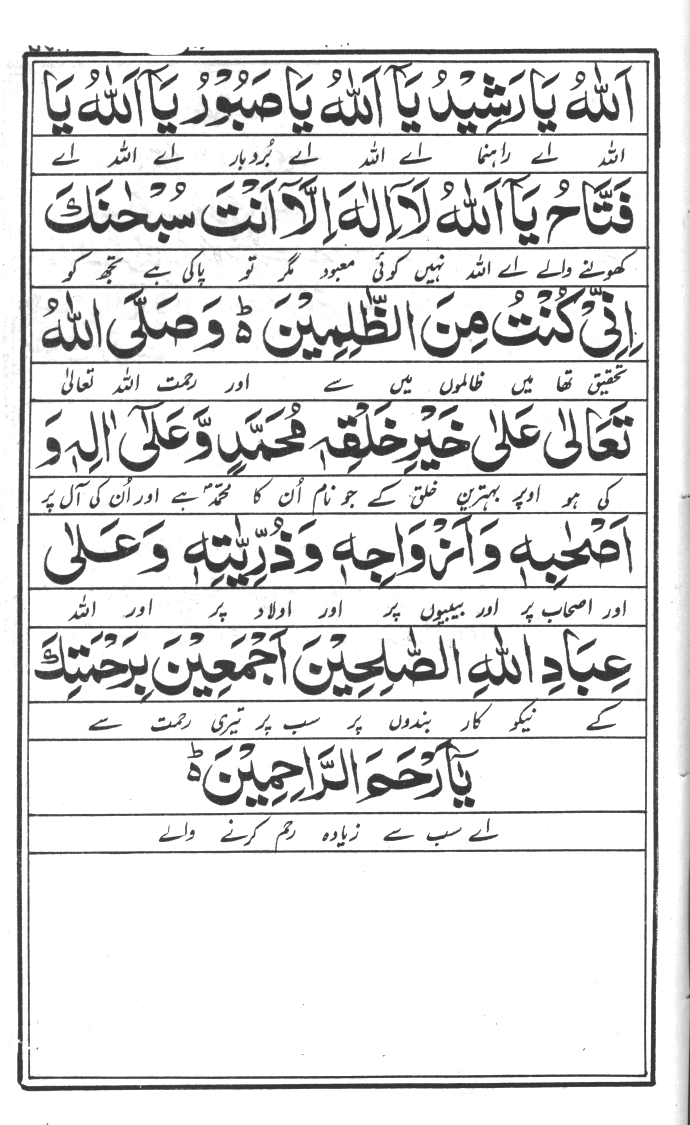 اَللّٰهُ يَا رَشِيْدُ يَآ اَللّٰهُ يَا صَبُوْرُ يَآ اَللّٰهُ يَا
اللہ اے راہنما اے اللہ اے بُردبار اے اللہ اے
فَتَّاحُ يَآ اَللّٰهُ لَآ اِلٰهَ اِلَّآ اَنْتَ سُبْحٰنَكَ
کھولنے والے اے اللہ نہیں کوئی معبود مگر تو پاکی ہے تجھ کو
اِنِّيْ كُنْتُ مِنَ الظّٰلِمِيْنَ ۃؕ وَصَلَّى اللهُ
تحقیق تھا میں ظالموں میں سے اور رحمت اللہ تعالیٰ
تَعَالٰى عَلٰى خَيْرِ خَلْقِهٖ مُحَمَّدٍ وَّعَلٰٓى اٰلِهٖ وَ
کی ہو اوپر بہترین خلق کے جو نام اُن کا محمدؐ ہے اور اُن کی آل پر
اَصْحٰبِهٖ وَاَزْوَاجِهٖ وَذُرِّيّٰتِهٖ وَعَلٰى
اور اصحاب پر اور بیبیوں پر اور اولاد پر اور اللہ
عِبَادِ اللهِ الصّٰلِحِيْنَ اَجْمَعِيْنَ بِرَحْمَتِكَ
کے نیکو کار بندوں پر سب پر تیری رحمت سے
يَآ اَرْحَمَ الرَّاحِمِيْنَ ۃؕ
اے سب سے زیادہ رحم کرنے والے